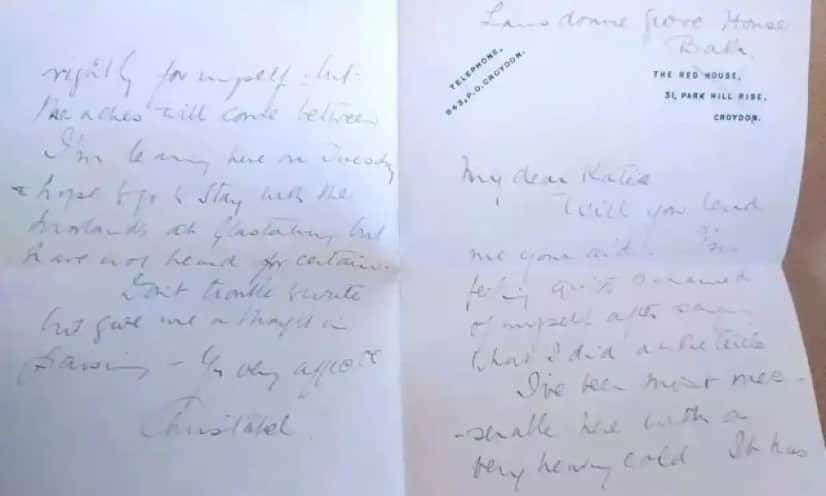 Lansdowne Grove House
Bath
TELEPHONE,
943, P.O. CROYDON.
THE RED HOUSE,
51, PARK HILL RISE,
CROYDON.
My dear Katie
Will you lend
me your aid. I'm
feeling quite ashamed
of myself after
what I did
I've been most mee-
-serable here with a
very heavy cold It has
rightly for myself - but
the aches will come between
I'm leaving here on Tuesday
& hope to go & stay with the
at Glastonbury but
have not heard for certain.
Don't trouble to write
but give me a thought in
passing - Yr very affecte
Christabel